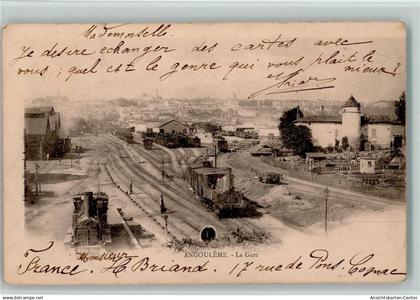 Mademoiselle
Je desire échanger des cartes avec
vous, quel est le genre qui vous plait le
mieux?
Briand
ANGOULÊME — La Gare
France Monsieur H Briand, 17 rue de Pons, Cognac
www.ansichtskarten-center.de